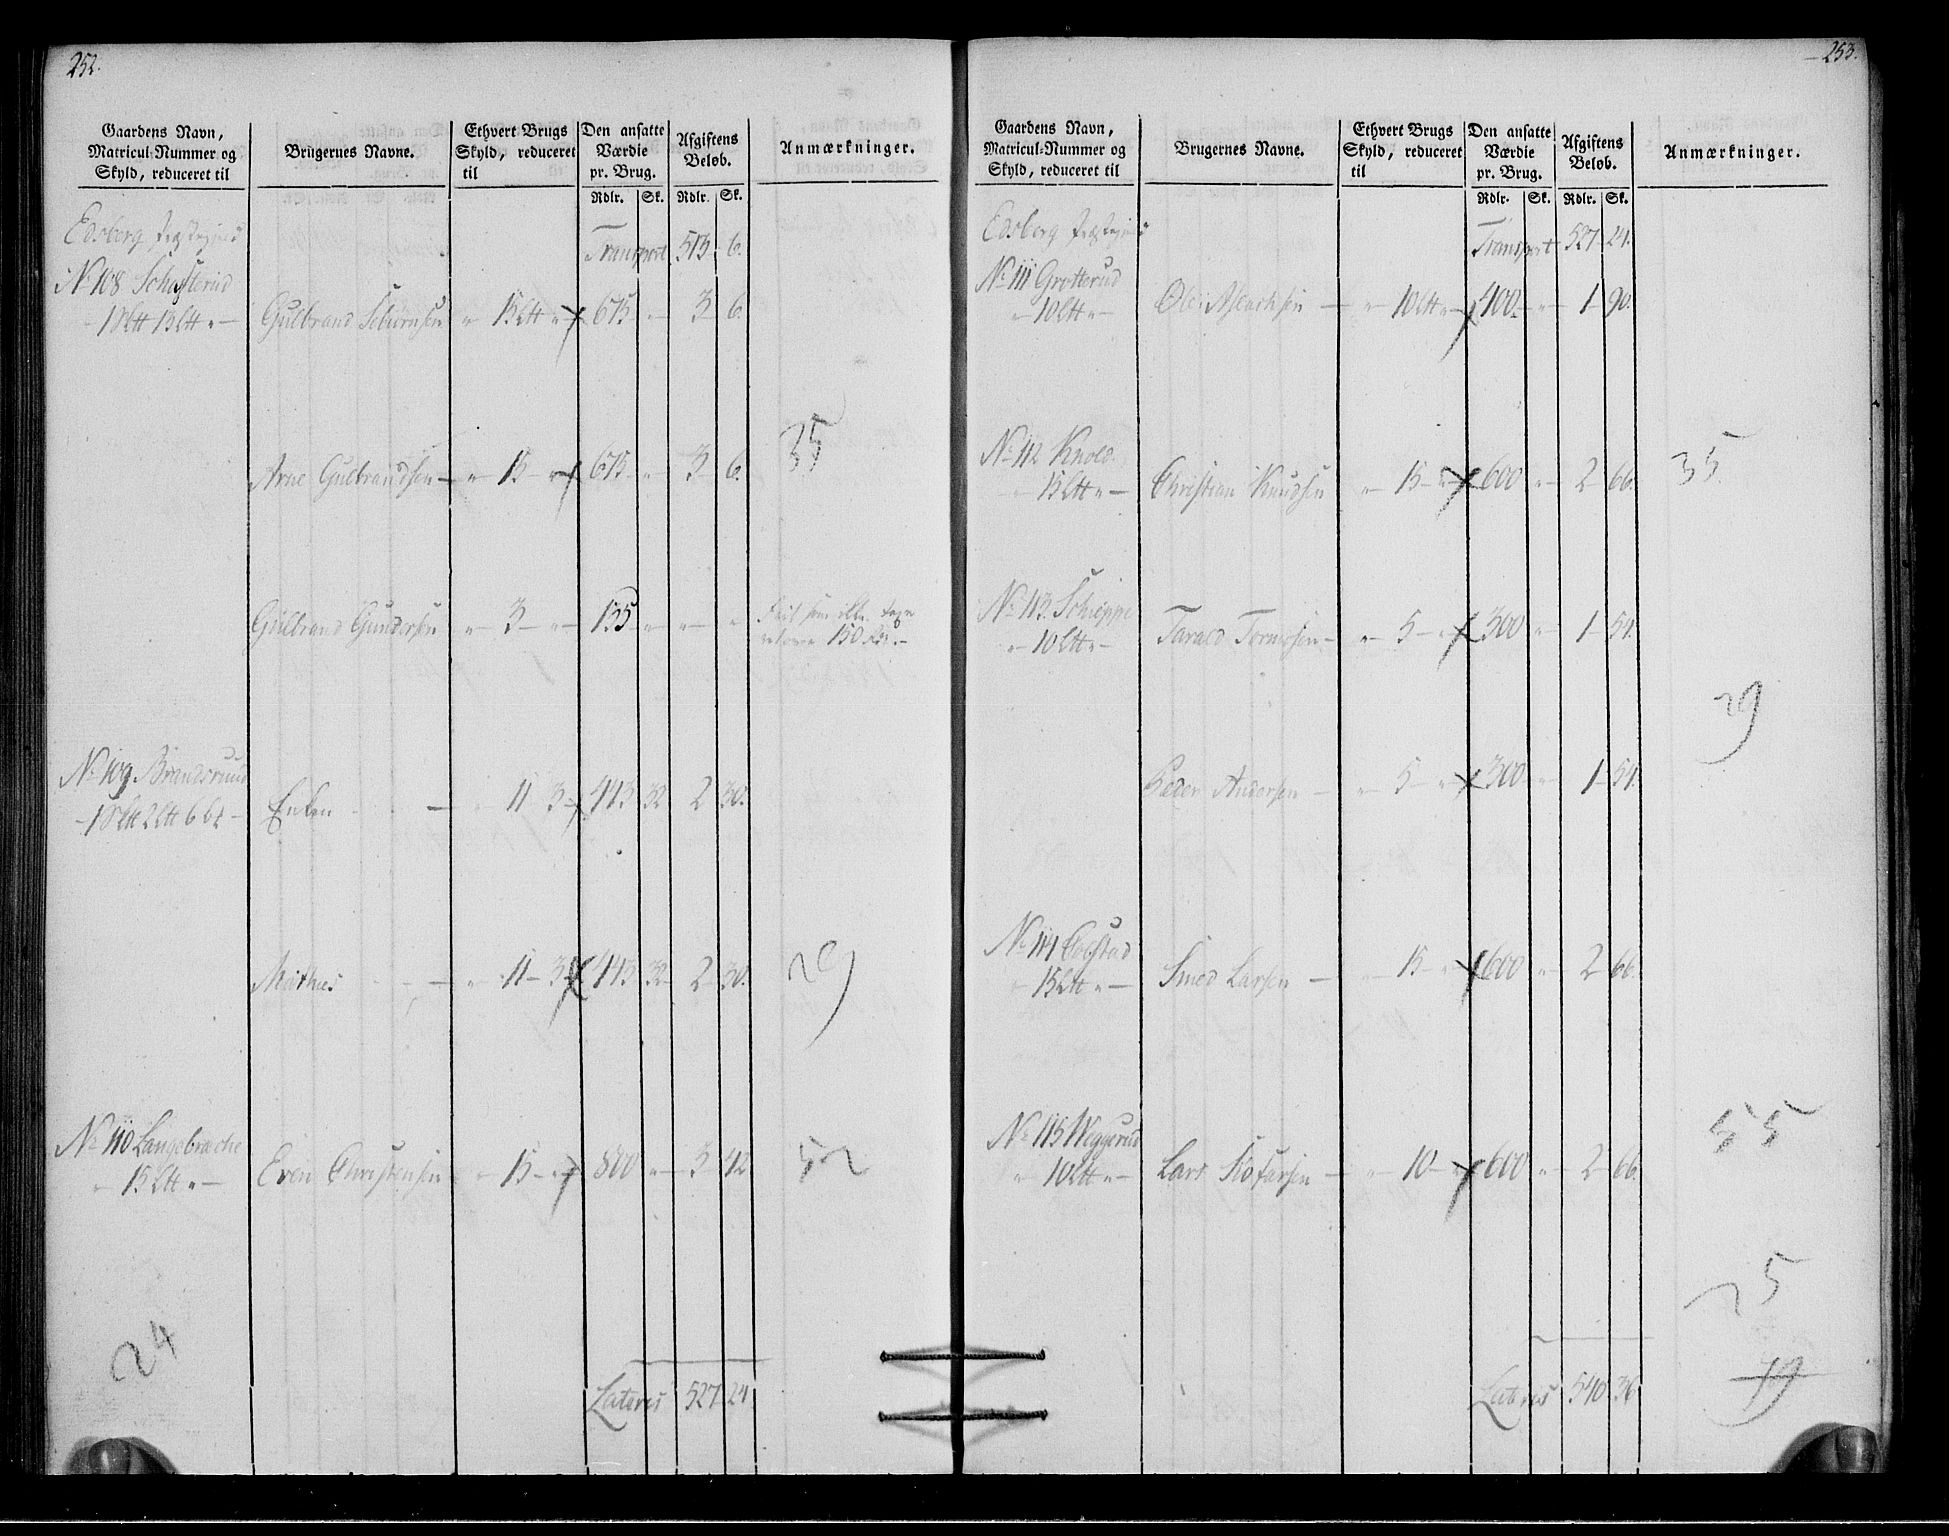 252.
Gaardens Navn, Matricul-Nummer og Skyld, reduceret til
Brugernes Navne.
Ethvert Brugs Skyld, reduceret til
Den ansatte Værdie pr. Brug.
Afgiftens Beløb.
Anmærkninger.
Rdlr. Sk. Rdlr. Sk.
Edsberg
Transport 513 6.
No 108
1 S℔ 13℔ " Gulbrand " 15℔ " 675 " 3 6.
Arne Gulbrandsen " 15 " 675 " 3 6.
35
Gulbrand Gundersen " 3 " 135 " " "
150 Rd.
No 109
1 S℔ 2℔ 6 Enken 11 3 443 32 2 30.
Mathies " 11 3 443 32 2 30.
29
No 110 Langebræche
" 15℔ " Even Christensen " 15 " 800 " 3 42
52
24
Lateris 527 24
253.
Gaardens Navn, Matricul-Nummer og Skyld, reduceret til
Brugernes Navne.
Ethvert Brugs Skyld, reduceret til
Den ansatte Værdie pr. Brug.
Afgiftens Beløb.
Anmærkninger.
Rdlr. Sk. Rdlr. Sk.
Edsberg
Transport 527 24.
No 111 Grotterud
" 10℔ " Ole Aslachsen " 10℔ " 400 " 1 90.
No 112 Knold
" 15℔ " Christian Knudsen " 15 " 600 " 2 66.
35.
No 113 Schieppe
" 10℔ " Tarald " 5 " 300 " 1 54.
29
Peder Andersen " 5 " 300 " 1 54.
No 114 Colstad
" 15℔ " Larsen " 15 " 600 " 2 66.
No 115 Weggerud
" 10℔ " Lars " 10 " 600 " 2 66.
55
25
19
Lateris 540 36